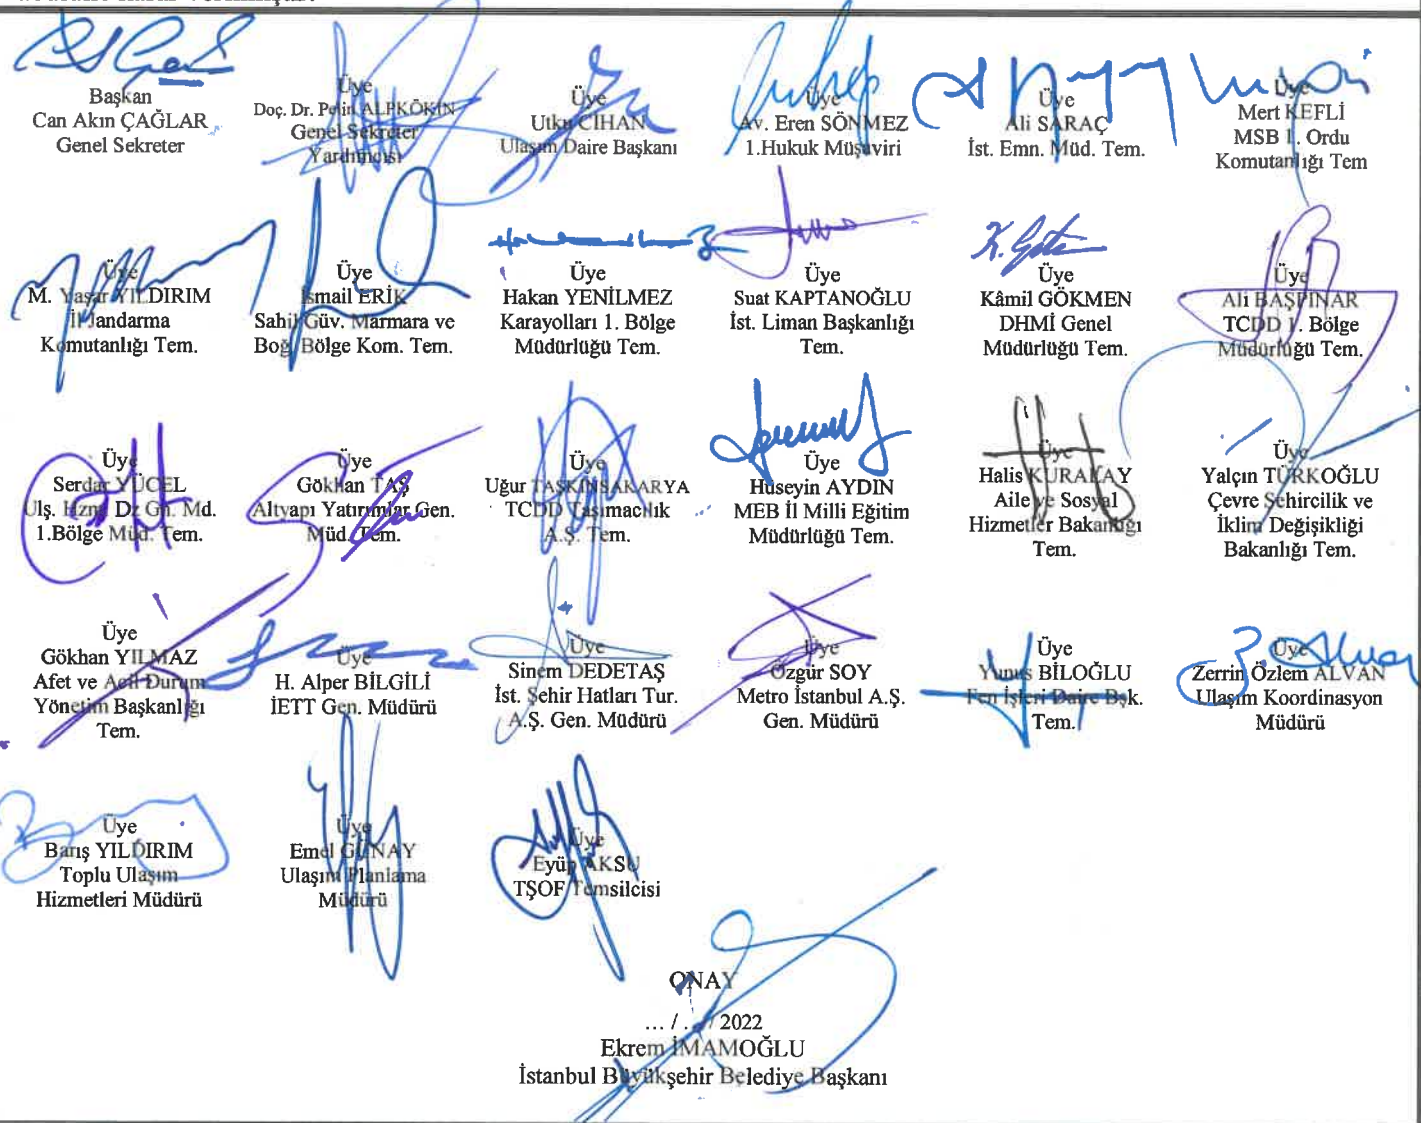 Başkan
Can Akın ÇAĞLAR
Genel Sekreter
Üye
Doç. Dr. Pelin ALPKÖKİN
Genel Sekreter
Yardımcısı
Üye
Utku CİHAN
Ulaşım Daire Başkanı
Üye
Av. Eren SÖNMEZ
1.Hukuk Müşaviri
Üye
Ali SARAÇ
İst. Emn. Müd. Tem.
Üye
Mert KEFLİ
MSB 1. Ordu
Komutanlığı Tem
Üye
M. Yaşar YILDIRIM
İl Jandarma
Komutanlığı Tem.
Üye
İsmail ERİK
Sahil Güv. Marmara ve
Boğ. Bölge Kom. Tem.
Üye
Hakan YENİLMEZ
Karayolları 1. Bölge
Müdürlüğü Tem.
Üye
Suat KAPTANOĞLU
İst. Liman Başkanlığı
Tem.
Üye
Kâmil GÖKMEN
DHMİ Genel
Müdürlüğü Tem.
Üye
Ali BAŞPINAR
TCDD 1. Bölge
Müdürlüğü Tem.
Üye
Serdar YÜCEL
Ulş. Hzm. Dz Gn. Md.
1.Bölge Müd. Tem.
Üye
Gökhan TAŞ
Altyapı Yatırımlar Gen.
Müd. Tem.
Üye
Uğur TAŞKINSAKARYA
TCDD Taşımacılık
A.Ş. Tem.
Üye
Hüseyin AYDIN
MEB İl Milli Eğitim
Müdürlüğü Tem.
Üye
Halis KURALAY
Aile ve Sosyal
Hizmetler Bakanlığı
Tem.
Üye
Yalçın TÜRKOĞLU
Çevre Şehircilik ve
İklim Değişikliği
Bakanlığı Tem.
Üye
Gökhan YILMAZ
Afet ve Acil Durum
Yönetim Başkanlığı
Tem.
Üye
H. Alper BİLGİLİ
İETT Gen. Müdürü
Üye
Sinem DEDETAŞ
İst. Şehir Hatları Tur.
A.Ş. Gen. Müdürü
Üye
Özgür SOY
Metro İstanbul A.Ş.
Gen. Müdürü
Üye
Yunus BİLOĞLU
Fen İşleri Daire Bşk.
Tem.
Üye
Zerrin Özlem ALVAN
Ulaşım Koordinasyon
Müdürü
Üye
Barış YILDIRIM
Toplu Ulaşım
Hizmetleri Müdürü
Üye
Emel GÜNAY
Ulaşım Planlama
Müdürü
Üye
Eyüp AKSU
TŞOF Temsilcisi
ONAY
... / ... / 2022
Ekrem İMAMOĞLU
İstanbul Büyükşehir Belediye Başkanı